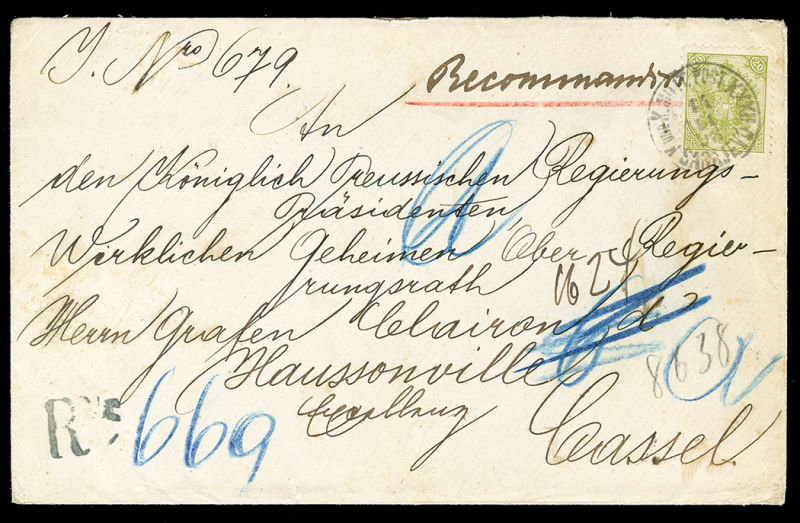 J. Nro 679.
Recommandirt
20 20
An
den Königlich Preussischen Regierungs-
Präsidenten,
Wirklichen Geheimen Ober-Regie-
rungsrath
Herrn Grafen Clairon d'
Haussonville
Excellenz
Cassel
8638
R
669